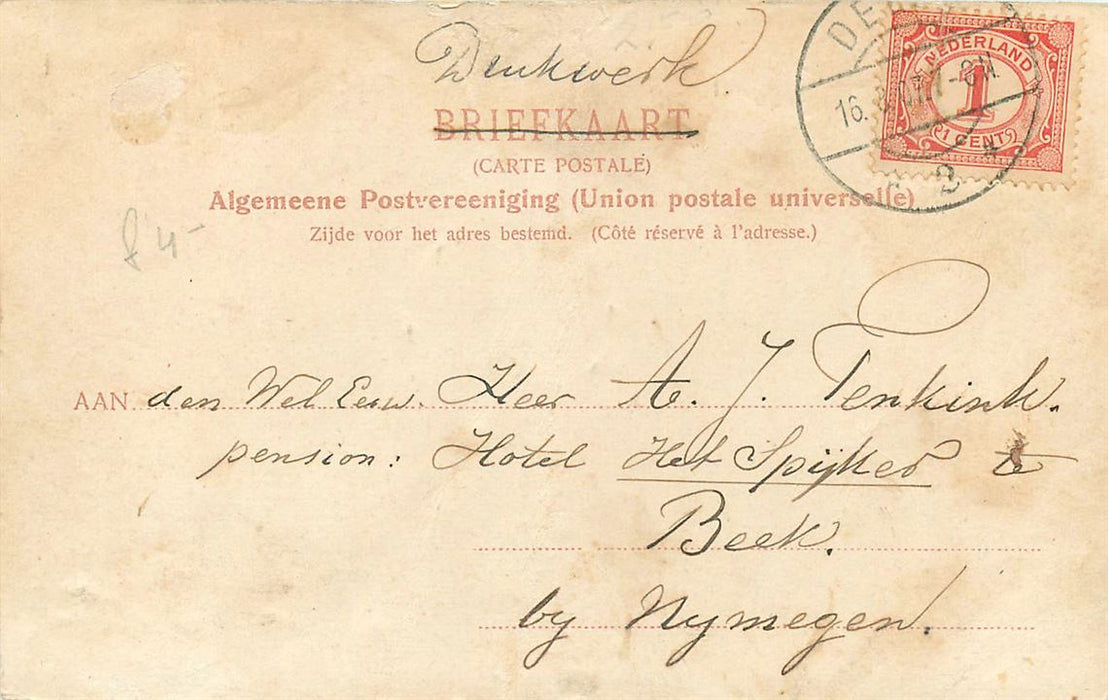 Drukwerk
BRIEFKAART
(CARTE POSTALE)
Algemeene Postvereeniging (Union postale universelle)
Zijde voor het adres bestemd. (Côté réservé à l'adresse.)
NEDERLAND
1
1 CENT
DE
16. 07 7-8 N
2
f 4-
AAN den Wel Eerw. Heer A. J. Tenkink.
pension: Hotel Het Spijker te
Beek.
by Nymegen.